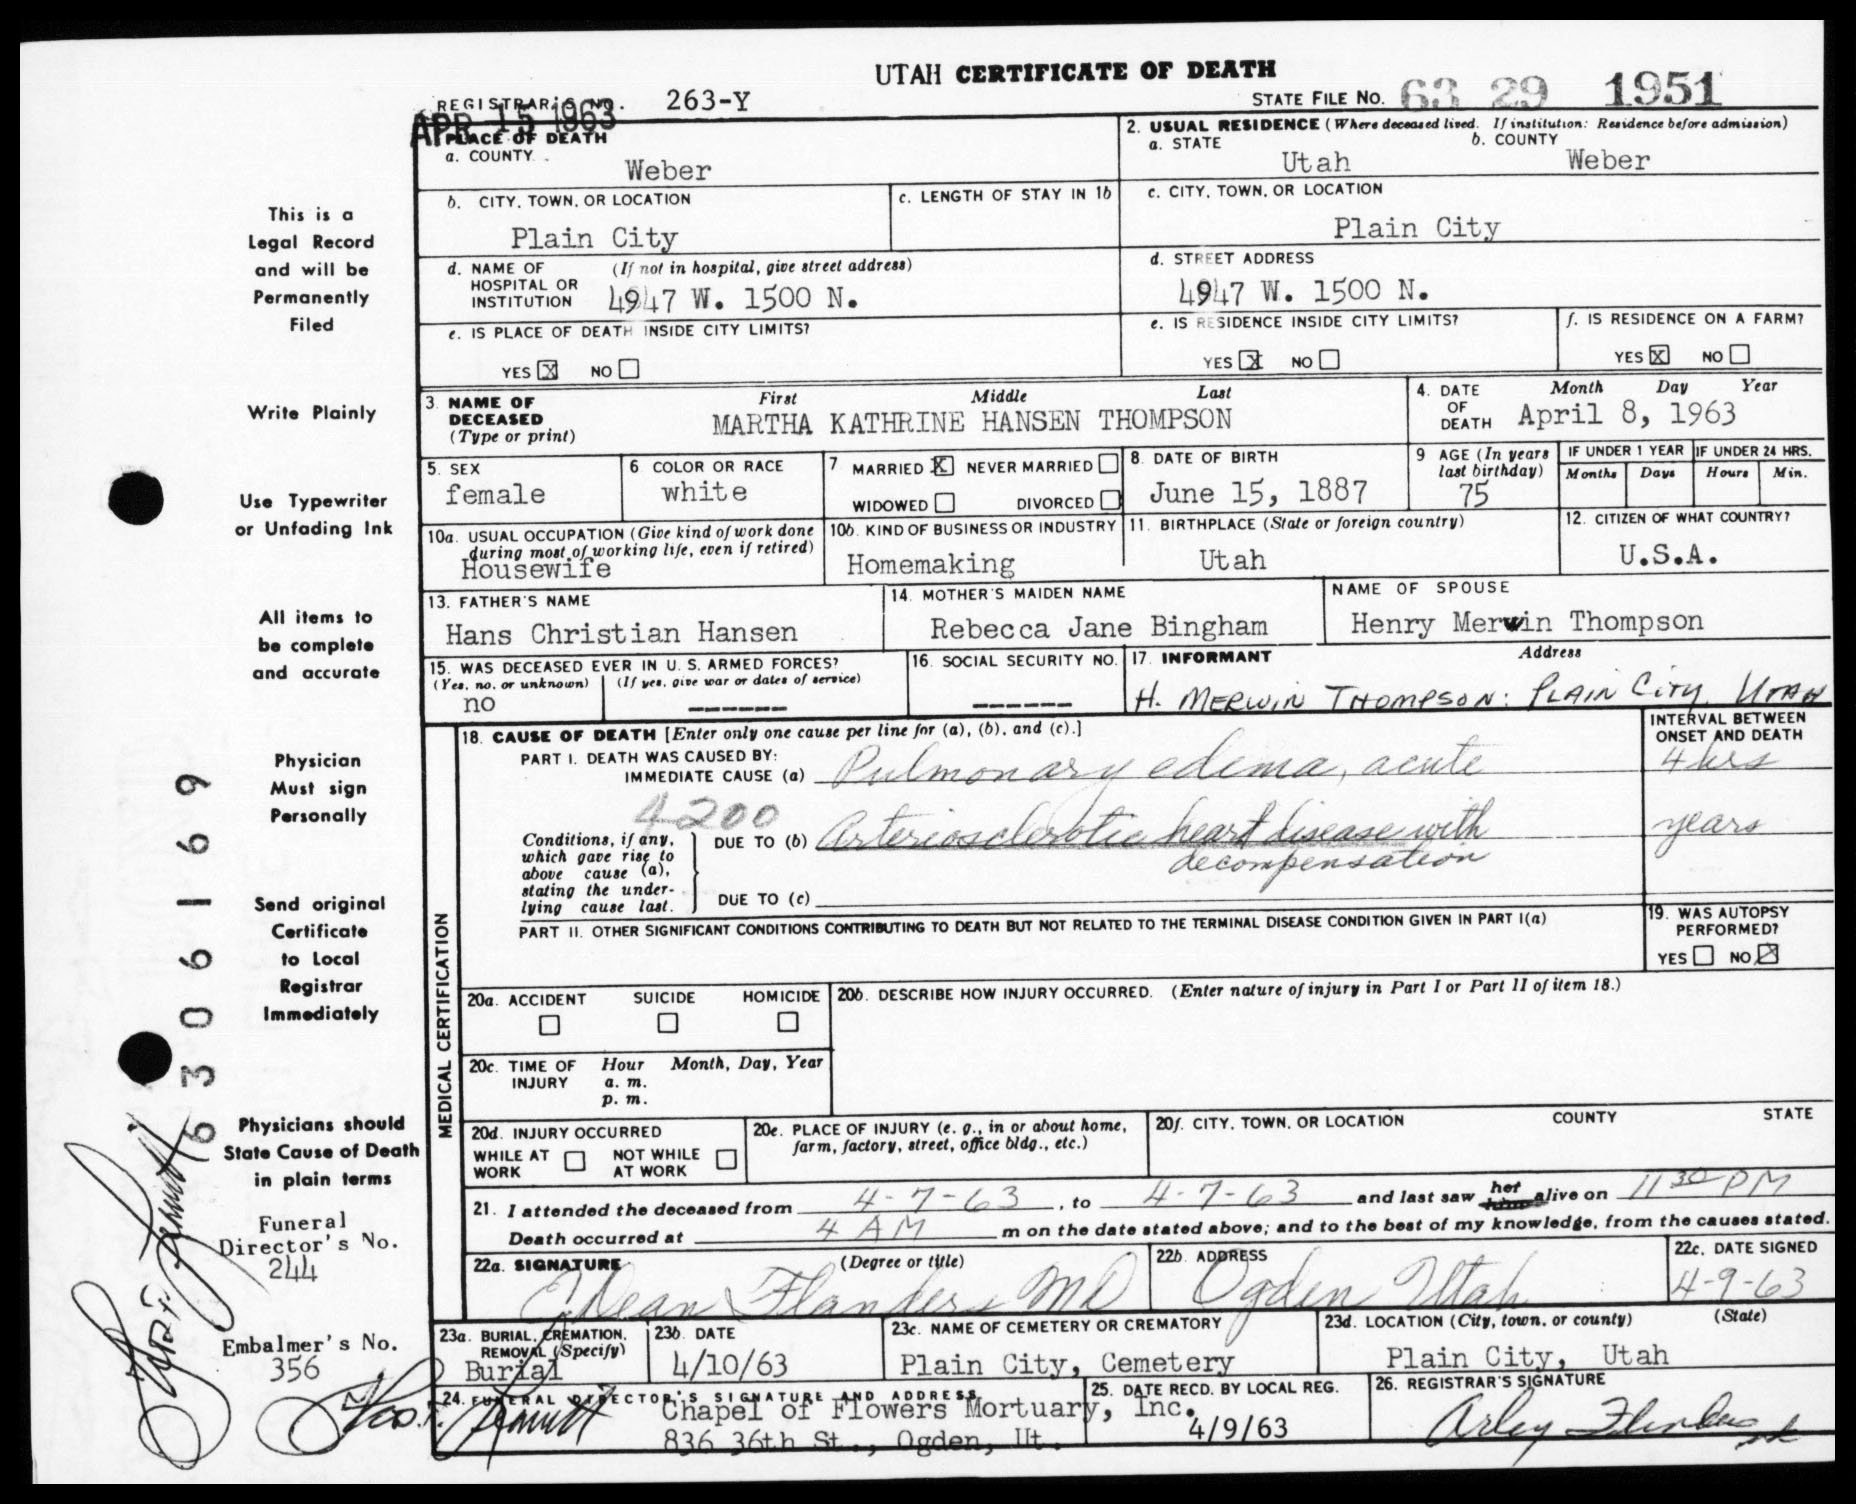 UTAH CERTIFICATE OF DEATH
REGISTRAR'S NO. 263-Y
STATE FILE NO. 63 29 1951
APR 15 1963
PLACE OF DEATH
a. COUNTY
Weber
2. USUAL RESIDENCE (Where deceased lived. If institution: Residence before admission)
a. STATE b. COUNTY
Utah Weber
b. CITY, TOWN, OR LOCATION
Plain City
c. LENGTH OF STAY IN 1b
c. CITY, TOWN, OR LOCATION
Plain City
d. NAME OF HOSPITAL OR INSTITUTION (If not in hospital, give street address)
4947 W. 1500 N.
d. STREET ADDRESS
4947 W. 1500 N.
e. IS PLACE OF DEATH INSIDE CITY LIMITS?
YES X NO
e. IS RESIDENCE INSIDE CITY LIMITS?
YES X NO
f. IS RESIDENCE ON A FARM?
YES X NO
3. NAME OF DECEASED (Type or print)
First Middle Last
MARTHA KATHRINE HANSEN THOMPSON
4. DATE OF DEATH Month Day Year
April 8, 1963
5. SEX
female
6 COLOR OR RACE
white
7 MARRIED X NEVER MARRIED
WIDOWED DIVORCED
8. DATE OF BIRTH
June 15, 1887
9 AGE (In years last birthday)
75
IF UNDER 1 YEAR
Months Days
IF UNDER 24 HRS.
Hours Min.
10a. USUAL OCCUPATION (Give kind of work done during most of working life, even if retired)
Housewife
10b. KIND OF BUSINESS OR INDUSTRY
Homemaking
11. BIRTHPLACE (State or foreign country)
Utah
12. CITIZEN OF WHAT COUNTRY?
U.S.A.
13. FATHER'S NAME
Hans Christian Hansen
14. MOTHER'S MAIDEN NAME
Rebecca Jane Bingham
NAME OF SPOUSE
Henry Merwin Thompson
15. WAS DECEASED EVER IN U. S. ARMED FORCES?
(Yes, no, or unknown) (If yes, give war or dates of service)
no ------
16. SOCIAL SECURITY NO.
------
17. INFORMANT Address
H. MERWIN THOMPSON: PLAIN CITY, UTAH
MEDICAL CERTIFICATION
18. CAUSE OF DEATH [Enter only one cause per line for (a), (b), and (c).]
INTERVAL BETWEEN ONSET AND DEATH
PART I. DEATH WAS CAUSED BY:
IMMEDIATE CAUSE (a) Pulmonary edema, acute 4 hrs
4200
Conditions, if any, which gave rise to above cause (a), stating the underlying cause last.
DUE TO (b) Arteriosclerotic heart disease with decompensation years
DUE TO (c)
PART II. OTHER SIGNIFICANT CONDITIONS CONTRIBUTING TO DEATH BUT NOT RELATED TO THE TERMINAL DISEASE CONDITION GIVEN IN PART I(a)
19. WAS AUTOPSY PERFORMED?
YES NO X
20a. ACCIDENT SUICIDE HOMICIDE
20b. DESCRIBE HOW INJURY OCCURRED. (Enter nature of injury in Part I or Part II of item 18.)
20c. TIME OF INJURY Hour Month, Day, Year
a. m.
p. m.
20d. INJURY OCCURRED
WHILE AT WORK NOT WHILE AT WORK
20e. PLACE OF INJURY (e. g., in or about home, farm, factory, street, office bldg., etc.)
20f. CITY, TOWN, OR LOCATION COUNTY STATE
21. I attended the deceased from 4-7-63, to 4-7-63 and last saw her him alive on 11 30 PM
Death occurred at 4 AM m on the date stated above; and to the best of my knowledge, from the causes stated.
22a. SIGNATURE (Degree or title)
E Dean Flanders MD
22b. ADDRESS
Ogden Utah
22c. DATE SIGNED
4-9-63
23a. BURIAL, CREMATION, REMOVAL (Specify)
Burial
23b. DATE
4/10/63
23c. NAME OF CEMETERY OR CREMATORY
Plain City, Cemetery
23d. LOCATION (City, town, or county) (State)
Plain City, Utah
24. FUNERAL DIRECTOR'S SIGNATURE AND ADDRESS
Chapel of Flowers Mortuary, Inc.
836 36th St., Ogden, Ut.
25. DATE RECD. BY LOCAL REG.
4/9/63
26. REGISTRAR'S SIGNATURE
Arley
This is a
Legal Record
and will be
Permanently
Filed
Write Plainly
Use Typewriter
or Unfading Ink
All items to
be complete
and accurate
Physician
Must sign
Personally
Send original
Certificate
to Local
Registrar
Immediately
Physicians should
State Cause of Death
in plain terms
Funeral
Director's No.
244
Embalmer's No.
356
6306169